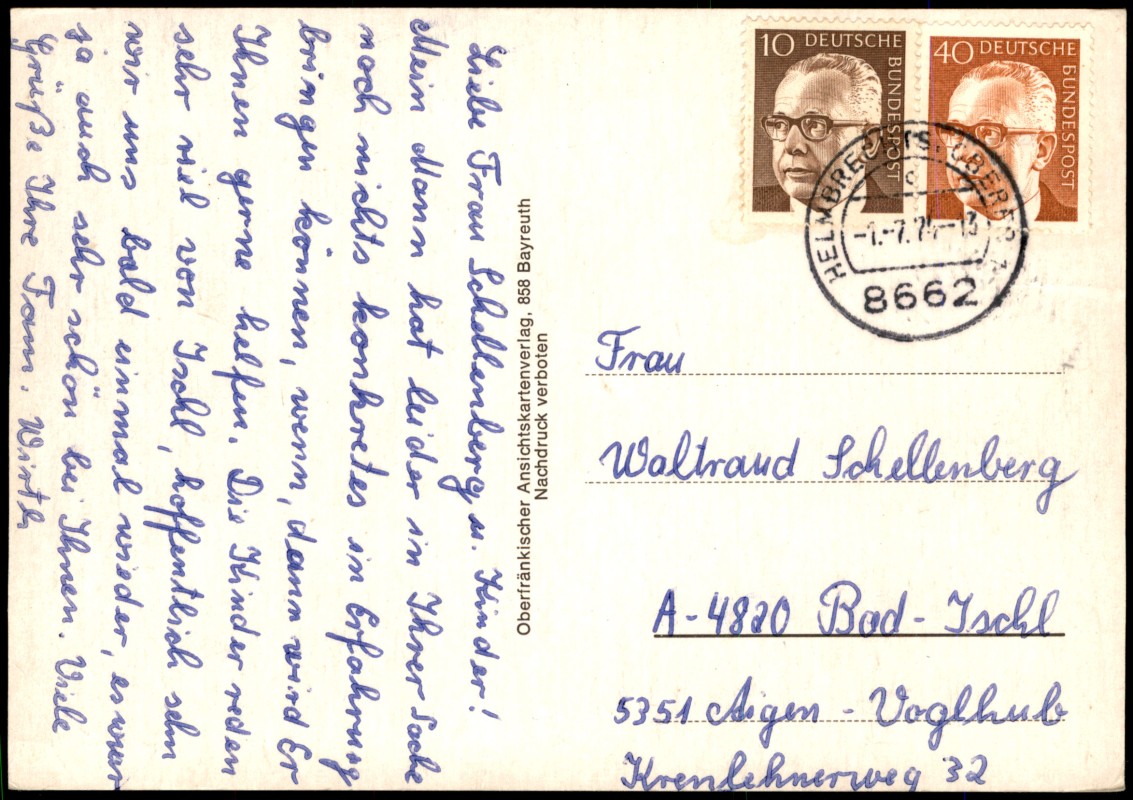 Liebe Frau Schellenberg u. Kinder!
Mein Mann hat leider in Ihrer Sache
noch nichts konkretes in Erfahrung
bringen können, wenn, dann wird Er
Ihnen gerne helfen. Die Kinder reden
sehr viel von Ischl, hoffentlich sehn
wir uns bald einmal wieder, es war
ja auch sehr schön bei Ihnen. Viele
Grüße Ihre Fam. Wirth
Oberfränkischer Ansichtskartenverlag, 858 Bayreuth
Nachdruck verboten
10 DEUTSCHE
BUNDESPOST
40 DEUTSCHE
BUNDESPOST
HELMBRECHTS, OBERFR
-1.-7.74-13
8662
Frau
Waltraud Schellenberg
A-4820 Bad-Ischl
5351 Aigen-Voglhub
Krenlehnerweg 32